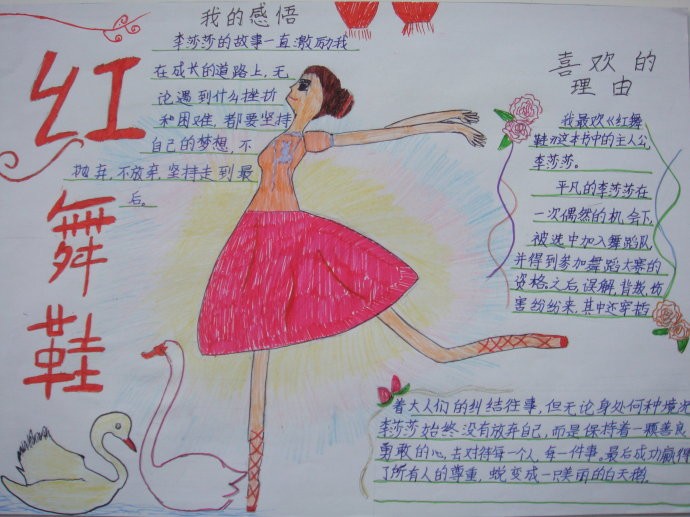 红
舞
鞋
我的感悟
李莎莎的故事一直激励我
在成长的道路上,无
论遇到什么挫折
和困难,都要坚持
自己的梦想,不
抛弃,不放弃,坚持走到最
后。
喜欢的
理由
我最欢《红舞
鞋》这本书中的主人公
李莎莎。
平凡的李莎莎在
一次偶然的机会下,
被选中加入舞蹈队
并得到参加舞蹈大赛的
资格,之后,误解,背叛,伤
害纷纷来,其中还穿插
着大人们的纠结往事,但无论身处何种境况
李莎莎始终没有放弃自己,而是保持着一颗善良
勇敢的心,去对待每一个人,每一件事。最后成功赢得
了所有人的尊重,蜕变成一只美丽的白天鹅。